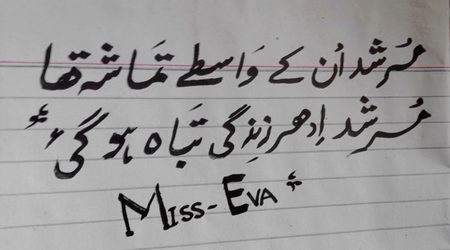 مُرشد اُن کے وَاسطے تمَاشہ تھا
مُرشد اِدھر زِندگی تبَاہ ہو گئی
MISS-EVA